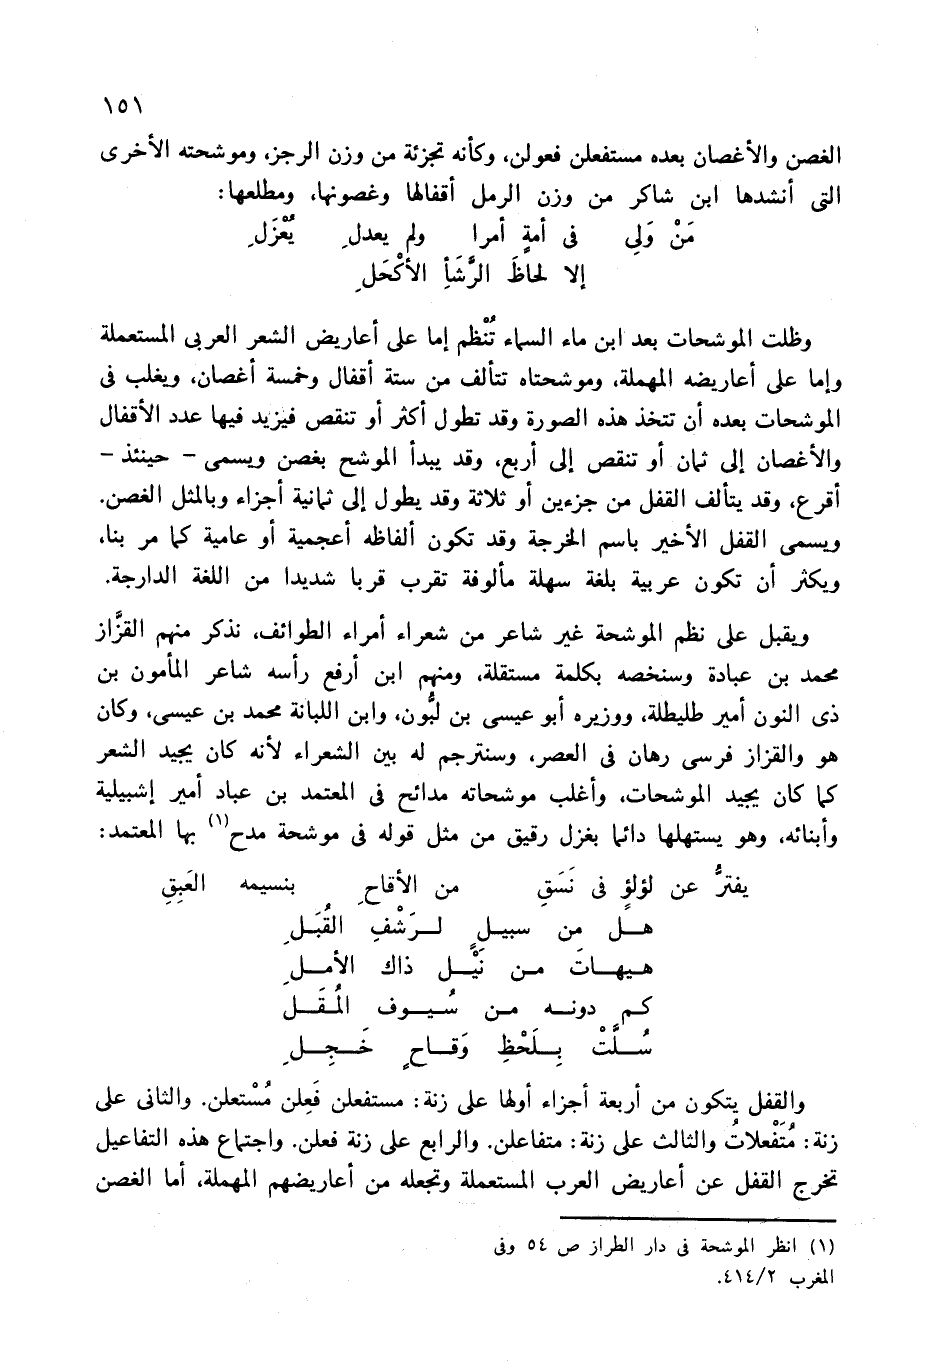 ١٥١
الغصن والأغصان بعده مستفعلن فعولن، وكأنه تجزئة من وزن الرجز، وموشحته الأخرى
التى أنشدها ابن شاكر من وزن الرمل أقفالها وغصونها، ومطلعها:
مَنْ وَلِى فى أمةٍ أمرا ولم يعدلِ يُعْزَلِ
إلا لحاظَ الرَّشَأِ الأكْحَلِ
وظلت الموشحات بعد ابن ماء السماء تُنْظم إما على أعاريض الشعر العربى المستعملة
وإما على أعاريضه المهملة، وموشحتاه تتألف من ستة أقفال وخمسة أغصان، ويغلب فى
الموشحات بعده أن تتخذ هذه الصورة وقد تطول أكثر أو تنقص فيزيد فيها عدد الأقفال
والأغصان إلى ثمان أو تنقص إلى أربع، وقد يبدأ الموشح بغصن ويسمى – حينئذ –
أقرع، وقد يتألف القفل من جزءين أو ثلاثة وقد يطول إلى ثمانية أجزاء وبالمثل الغصن.
ويسمى القفل الأخير باسم الخرجة وقد تكون ألفاظه أعجمية أو عامية كما مر بنا،
ويكثر أن تكون عربية بلغة سهلة مألوفة تقرب قربا شديدا من اللغة الدارجة.
ويقبل على نظم الموشحة غير شاعر من شعراء أمراء الطوائف، نذكر منهم القزَّاز
محمد بن عبادة وسنخصه بكلمة مستقلة، ومنهم ابن أرفع رأسه شاعر المأمون بن
ذى النون أمير طليطلة، ووزيره أبو عيسى بن لبُّون، وابن اللبانة محمد بن عيسى، وكان
هو والقزاز فرسى رهان فى العصر، وسنترجم له بين الشعراء لأنه كان يجيد الشعر
كما كان يجيد الموشحات، وأغلب موشحاته مدائح فى المعتمد بن عباد أمير إشبيلية
وأبنائه، وهو يستهلها دائما بغزل رقيق من مثل قوله فى موشحة مدح(١) بها المعتمد:
يفترُّ عن لؤلؤٍ فى نَسَقِ من الأقاحِ بنسيمه العَبِقِ
هـل من سبيلٍ لـرَشْفِ القُبَلِ
هيهاتَ مـن نَيْـلِ ذاك الأمـلِ
كـم دونـه مـن سُيـوف المُقَـلِ
سُـلَّتْ بِـلَحْظٍ وَقـاحٍ خَـجِـلِ
والقفل يتكون من أربعة أجزاء أولها على زنة: مستفعلن فَعِلن مُسْتعلن. والثانى على
زنة: مُتَفْعلاتُ والثالث على زنة: متفاعلن. والرابع على زنة فعلن. واجتماع هذه التفاعيل
تخرج القفل عن أعاريض العرب المستعملة وتجعله من أعاريضهم المهملة، أما الغصن
(١) انظر الموشحة فى دار الطراز ص ٥٤ وفى
المغرب ٤١٤/٢.